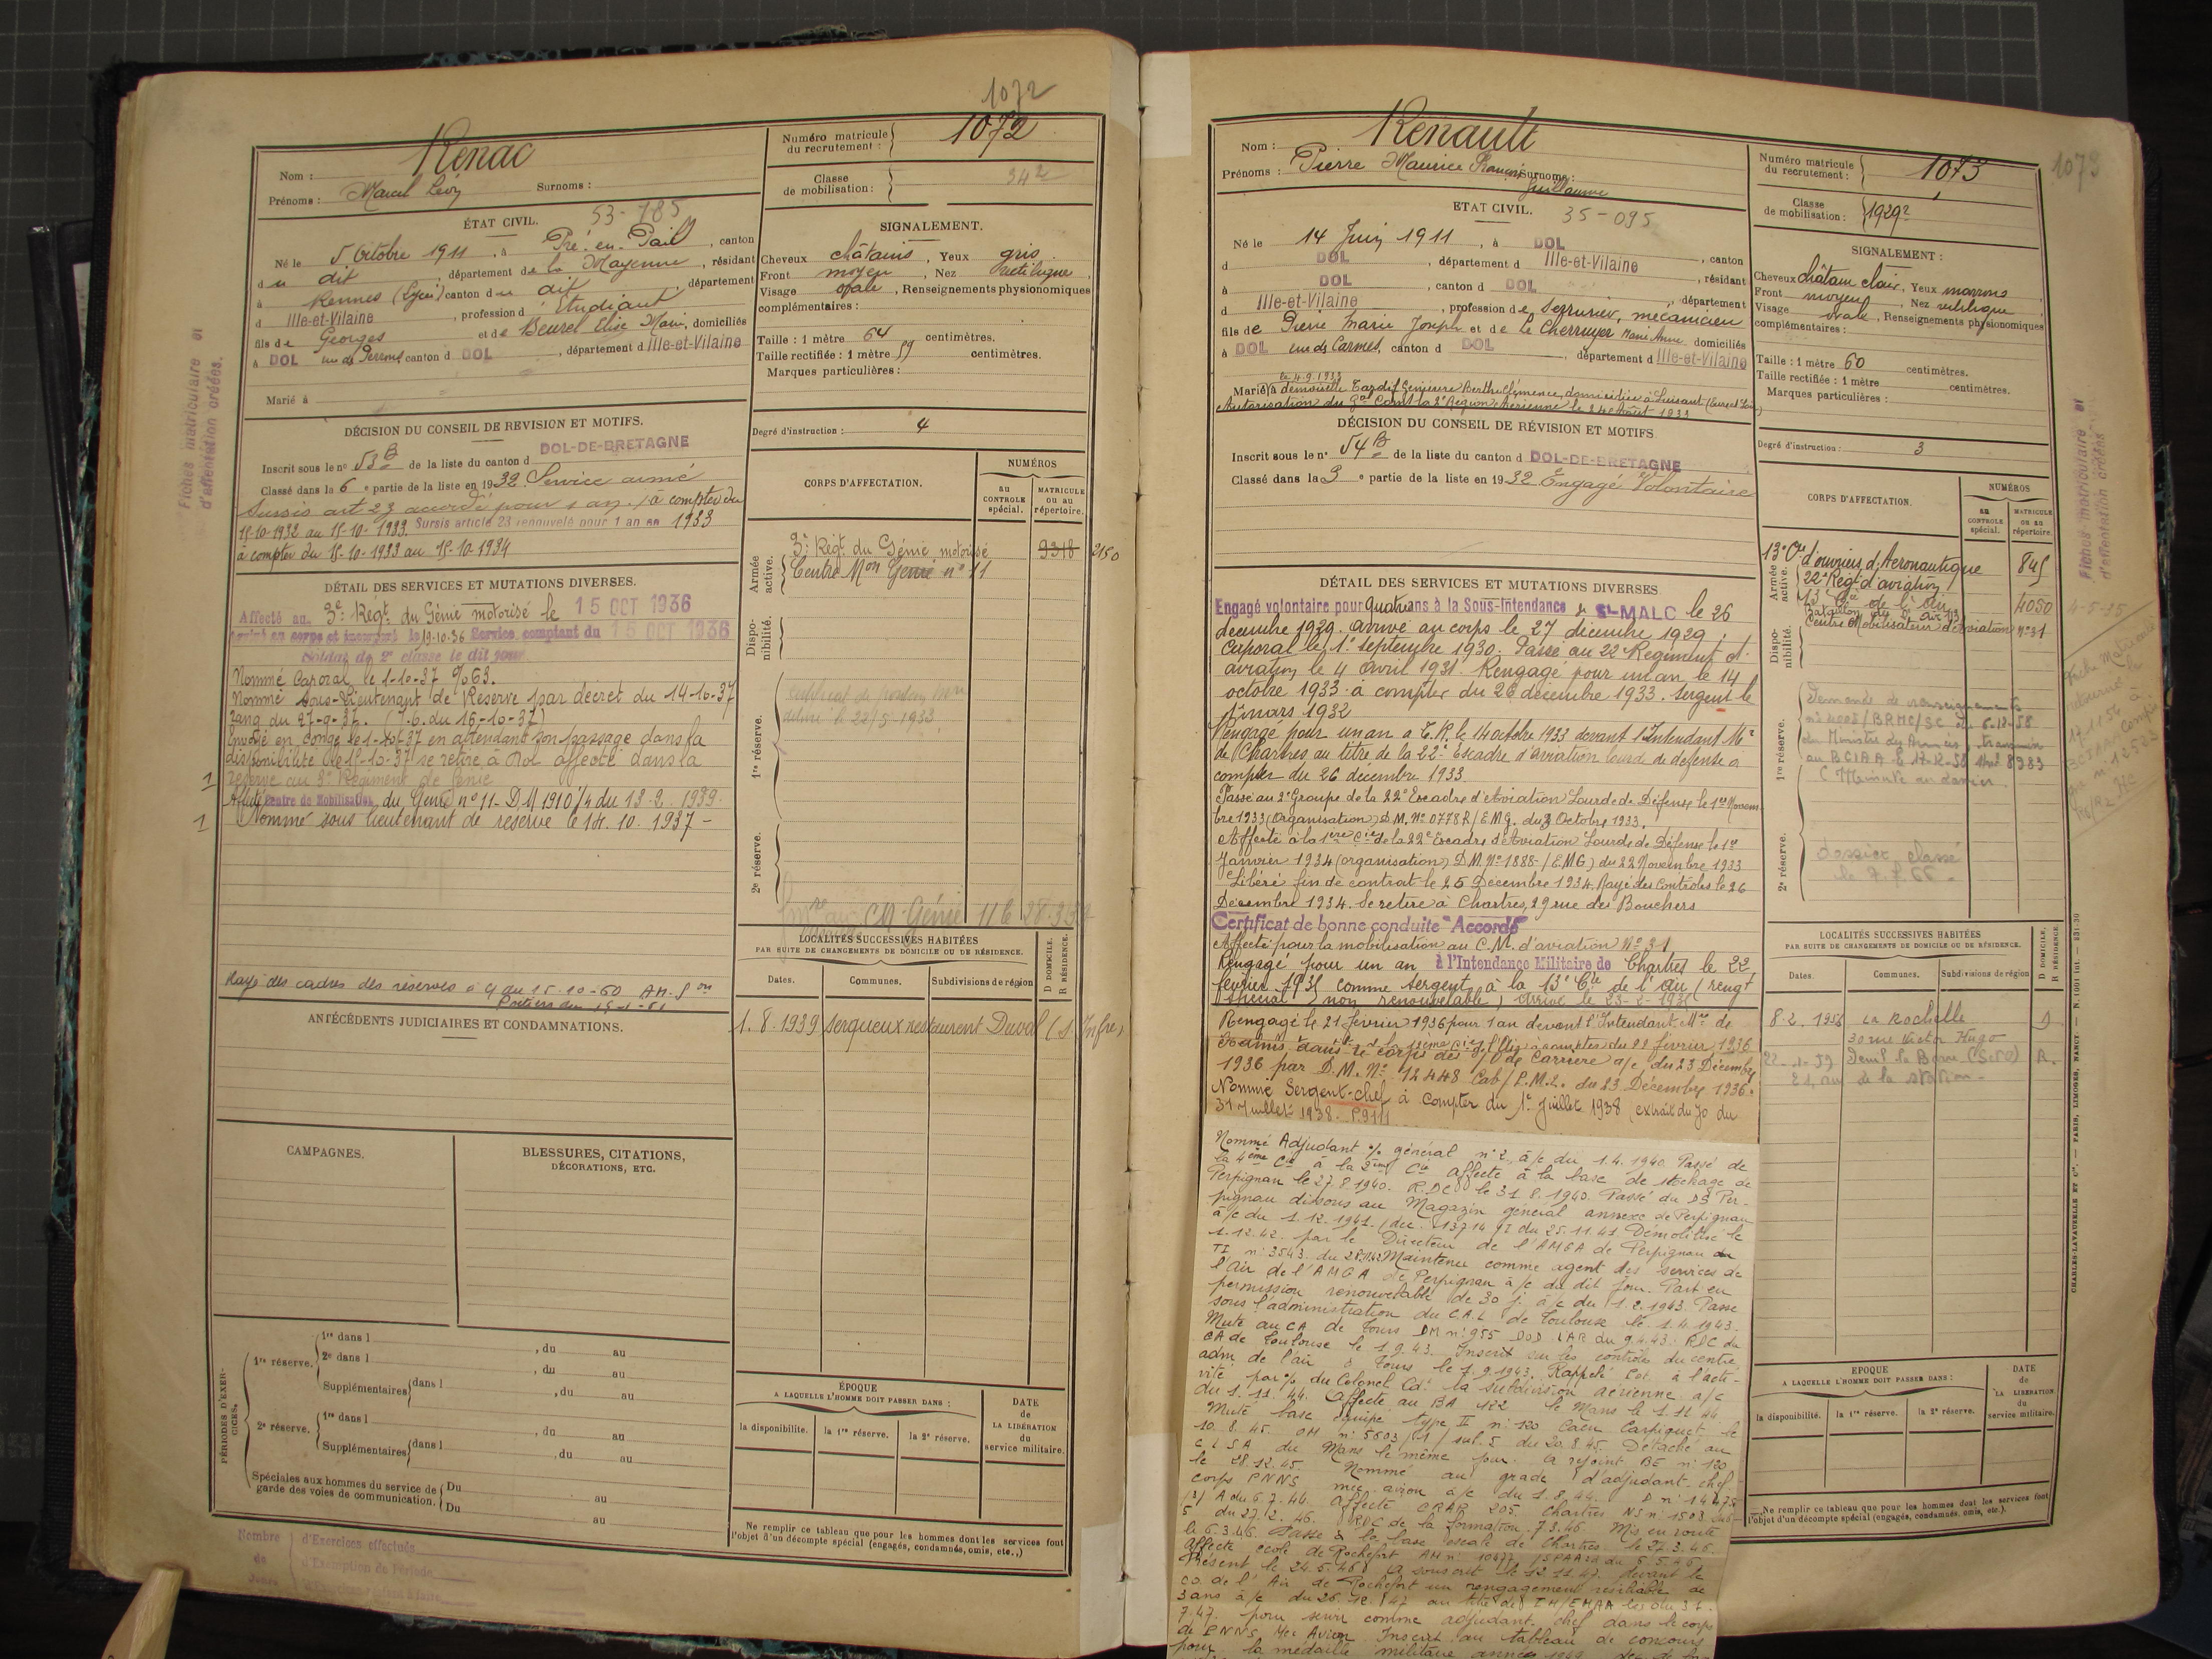 1072
Nom : Renac
Prénoms : Marcel Léon Surnoms :
Numéro matricule du recrutement : 1072
Classe de mobilisation : 34 2
ÉTAT CIVIL. 53-785
Né le 5 Octobre 1911, à Pré-en-Pail, canton
du dit, département de la Mayenne, résidant
à Rennes (Lycée) canton du dit, département
d Ille-et-Vilaine, profession d'Étudiant
fils de Georges et de Beurel Elise Marie, domiciliés
à DOL rue des Perrons canton d DOL, département d Ille-et-Vilaine
Marié à
SIGNALEMENT.
Cheveux châtains, Yeux gris
Front moyen, Nez rectiligne,
Visage ovale, Renseignements physionomiques
complémentaires :
Taille : 1 mètre 64 centimètres.
Taille rectifiée : 1 mètre 59 centimètres.
Marques particulières :
Degré d'instruction : 4
DÉCISION DU CONSEIL DE REVISION ET MOTIFS.
Inscrit sous le n° 53 B de la liste du canton d DOL-DE-BRETAGNE
Classé dans la 6e partie de la liste en 1932 Service armé
Sursis art 23 accordé pour 1 an, à compter du
15-10-1932 au 15-10-1933. Sursis article 23 renouvelé pour 1 an en 1933
à compter du 15-10-1933 au 15-10-1934
DÉTAIL DES SERVICES ET MUTATIONS DIVERSES.
Affecté au 3e Régt du Génie motorisé le 15 OCT 1936
le 19-10-36 Service comptant du 15 OCT 1936
Soldat de 2e classe le dit jour
Nommé Caporal le 1-10-37 % 63.
Nommé Sous-Lieutenant de Réserve par décret du 14-10-37
rang du 27-9-37. (J.O. du 16-10-37)
Envoyé en congé le 1-10-37 en attendant son passage dans la
disponibilité le 15-10-37 se retire à Dol affecté dans la
réserve au 3e Régiment de Génie
Affecté Centre de Mobilisation du Génie n° 11 - DM 1910/4 du 13-2-1939.
Nommé sous lieutenant de réserve le 14.10.1937 -
Rayé des cadres des réserves à cy du 15-10-60
ANTÉCÉDENTS JUDICIAIRES ET CONDAMNATIONS.
CAMPAGNES.
BLESSURES, CITATIONS,
DÉCORATIONS, ETC.
PÉRIODES D'EXERCICES.
1re réserve. 1re dans l , du au
2e dans l , du au
Supplémentaires dans l , du au
2e réserve. 1re dans l , du au
Supplémentaires dans l , du au
Spéciales aux hommes du service de garde des voies de communication. Du au
Du au
Nombre de Jours
d'Exercices effectués
d'Exemption de Période
CORPS D'AFFECTATION.
NUMÉROS
au CONTROLE spécial.
MATRICULE ou au répertoire.
Armée active.
3e Régt du Génie motorisé 9318 2150
Centre Mon Génie n° 11
Disponibilité.
1re réserve.
délivré le 22/5-1933
2e réserve.
CM Génie 11
LOCALITÉS SUCCESSIVES HABITÉES
PAR SUITE DE CHANGEMENTS DE DOMICILE OU DE RÉSIDENCE.
Dates. Communes. Subdivisions de région D DOMICILE. R RÉSIDENCE.
1.8.1939 Serqueux restaurent Duval (S. Infre)
ÉPOQUE
A LAQUELLE L'HOMME DOIT PASSER DANS :
la disponibilité. la 1re réserve. la 2e réserve.
DATE de LA LIBÉRATION du service militaire.
Ne remplir ce tableau que pour les hommes dont les services font
l'objet d'un décompte spécial (engagés, condamnés, omis, etc.,)
Fiches matriculaire et
d'affectation créées.
Nom : Renault
Prénoms : Pierre Maurice Francis Surnoms :
Guillaume
Numéro matricule du recrutement : 1073
1073
Classe de mobilisation : 1929 2
ETAT CIVIL. 35-095
Né le 14 Juin 1911, à DOL
d DOL, département d Ille-et-Vilaine, canton
à DOL, canton d DOL, résidant
d Ille-et-Vilaine, profession de Serrurier, mécanicien, département
fils de Pierre Marie Joseph et de Le Cherruyer Marie Anne domiciliés
à DOL rue des Carmes, canton d DOL, département d Ille-et-Vilaine
le 4.9.1933
Marié à demoiselle Tardif Geneviève Berthe Clémence, domiciliée à Luisant (Eure et Loir)
Autorisation du Gal Comt la 2e Région Aérienne le 24 Août 1933
SIGNALEMENT :
Cheveux châtain clair, Yeux marrons
Front moyen, Nez rectiligne
Visage ovale, Renseignements physionomiques
complémentaires :
Taille : 1 mètre 60 centimètres.
Taille rectifiée : 1 mètre centimètres.
Marques particulières :
Degré d'instruction : 3
DÉCISION DU CONSEIL DE RÉVISION ET MOTIFS
Inscrit sous le n° 54 B de la liste du canton d DOL-DE-BRETAGNE
Classé dans la 3e partie de la liste en 1932 Engagé Volontaire
DÉTAIL DES SERVICES ET MUTATIONS DIVERSES
Engagé volontaire pour quatre ans à la Sous-Intendance de St-MALO le 26
décembre 1929. Arrivé au corps le 27 décembre 1929.
Caporal le 1er septembre 1930. Passé au 22e Régiment d'
aviation le 4 Avril 1931. Rengagé pour un an le 14
octobre 1933 à compter du 26 décembre 1933. Sergent le
1er mars 1932
Rengagé pour un an a C.R. le 14 octobre 1933 devant l'Intendant Mre
de Chartres au titre de la 22e Escadre d'aviation lourde de défense à
compter du 26 décembre 1933
Passé au 2e Groupe de la 22e Escadre d'Aviation Lourde de Défense le 1er Novem-
bre 1933 (Organisation) D.M. N° 0778 R/EMG. du 3 Octobre 1933.
Affecté à la 1ère Cie de la 22e Escadre d'Aviation Lourde de Défense le 1er
Janvier 1934 (organisation) D.M. N° 1888-/EMG) du 22 Novembre 1933
Libéré fin de contrat le 25 Décembre 1934. Rayé des Contrôles le 26
Décembre 1934. Se retire à Chartres, 29 rue des Bouchers
Certificat de bonne conduite "Accordé"
Affecté pour la mobilisation au C.M. d'aviation N° 31
Rengagé pour un an à l'Intendance Militaire de Chartres le 22
février 1935 comme sergent à la 13e Cie de l'Air (rengt
spécial non renouvelable) arrivé le 23-2-1935
Rengagé le 21 février 1936 pour 1 an devant l'Intendant Mre de
Chartres à compter du 22 février 1936
Admis dans le corps des S/O de Carrière a/c du 23 Décembre
1936 par D.M. N° 12448 Cab/P.M.2. du 23 Décembre 1936.
Nommé Sergent-chef à compter du 1er Juillet 1938 (extrait du JO du
31 Juillet 1938. P.9111
Nommé Adjudant % général n° 2, à/c du 1.4.1940. Passé de
la 4ème Cie à la 2ème Cie affecté à la base de stockage de
Perpignan le 27.8.1940. R.D.C le 31.8.1940. Passé du DS Per-
pignan dissous au Magazin général annexe de Perpignan
à/c du 1.12.1941. (dec. 13714 du 25.11.41 Démobilisé le
1.12.42. par le Directeur de l'AMGA de Perpignan
TI n° 3543. du 28.11.42 Maintenu comme agent des services de
l'Air de l'AMGA de Perpignan à/c du dit jour. Part en
permission renouvelable de 30 j. à/c du 1.2.1943. Passe
sous l'administration du C.A.L de Toulouse le 1.4.1943.
Muté au CA de Tours DM n° 955 DOD LAR du 9.4.43. RDC du
CA de Toulouse le 1.9.43. Inscrit sur les contrôles du centre
adm. de l'air à Tours le 1.9.1943. Rappelé à l'acti-
vité par % du Colonel Cdt la subdivision aérienne a/c
du 1.11.44. Affecté au BA 122 le Mans le 1.11.44
Muté base équipé type II n° 120 Caen Carpiquet le
10.8.45. OM n° 5603/1/ du 20.8.45. Détaché au
C L S A du Mans le même jour. A rejoint BE n° 120
le 28.12.45. Nommé au grade d'adjudant-chef
corps PNNS mec. avion à/c du 1.8.44. D n° 14478
A du 6.7.44. Affecté CRAR 205. Chartres NS n° 1503
5 du 27.2.46. RDC de la formation 7.3.46. Mis en route
le 6.3.46. Passe à la base escale de Chartres le 27.3.46.
Affecté école de Rochefort AM n° 10477 du 6.5.46.
Présent le 24.5.46. A souscrit le 12.11.47. devant le
CO de l'Air de Rochefort un rengagement résiliable de
3 ans à/c du 26.12.47 au titre de I M/EMAA
7.47. pour servir comme adjudant-chef dans le corps
de PNNS Mec Avion. Inscrit au tableau de concours
pour la médaille militaire année 1949
CORPS D'AFFECTATION.
NUMÉROS
au CONTROLE spécial.
MATRICULE ou au répertoire.
Armée active.
13e Cie d'ouvriers d'Aéronautique 845
22e Régt d'aviation
13e Cie de l'Air 4050
Bataillon de l'Air
Centre Mobilisateur d'Aviation N° 31
Disponibilité.
1re réserve.
Demande de renseignements
du 6-12-58
du Ministre des Armées, transmise
au BCIAA le 17-12-58 8983
(Minute au dossier
2e réserve.
dossier classé
le 7.7.66 -
LOCALITÉS SUCCESSIVES HABITÉES
PAR SUITE DE CHANGEMENTS DE DOMICILE OU DE RÉSIDENCE.
Dates. Communes. Subdivisions de région D DOMICILE, R RÉSIDENCE
8.2.1956 La Rochelle D
30 rue Victor Hugo
R.
21, de la Station -
EPOQUE
A LAQUELLE L'HOMME DOIT PASSER DANS :
la disponibilité. la 1re réserve. la 2e réserve.
DATE de LA LIBÉRATION du service militaire.
Ne remplir ce tableau que pour les hommes dont les services font
l'objet d'un décompte spécial (engagés, condamnés, omis, etc.).
Fiches matriculaire et
d'affectation créées
CHARLES-LAVAUZELLE ET Cie, PARIS, LIMOGES, NANCY